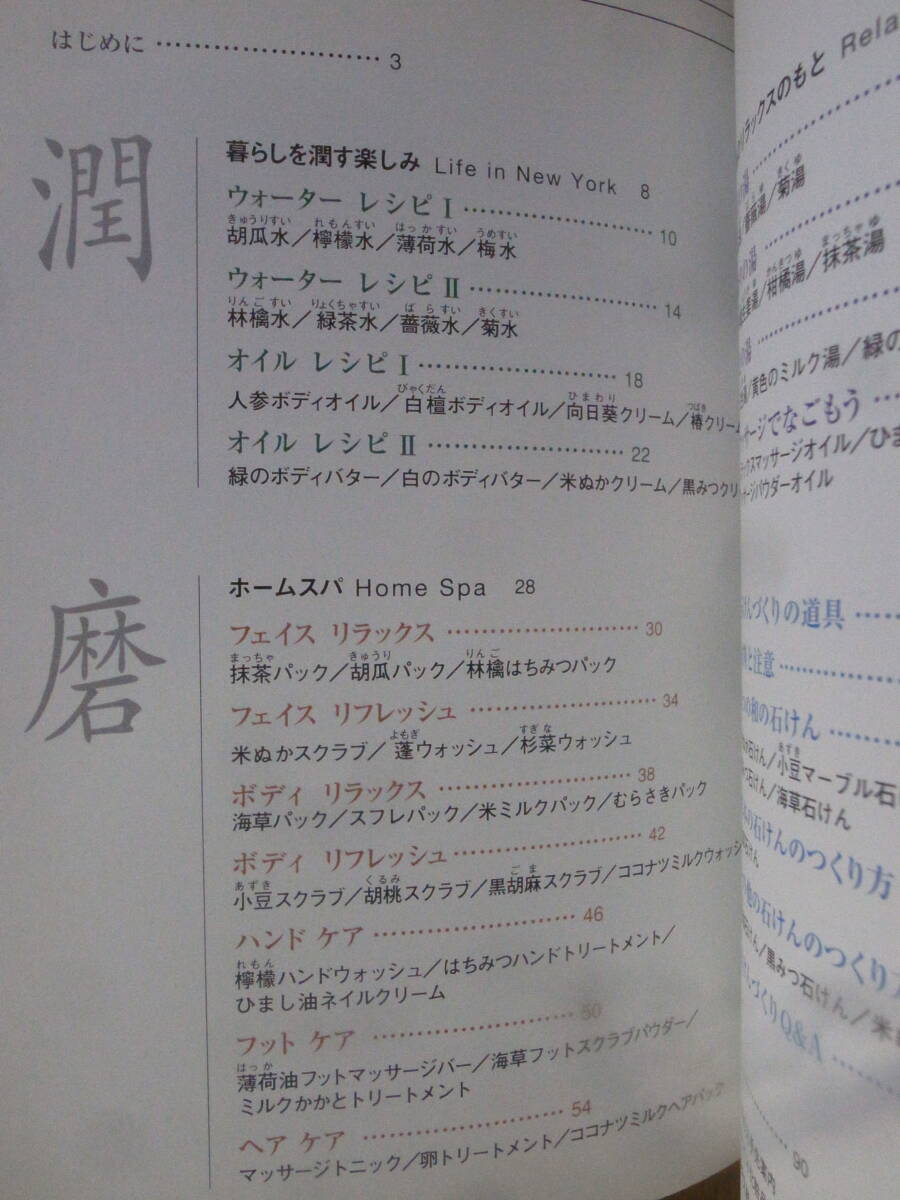 はじめに …………………… 3
潤
暮らしを潤す楽しみ Life in New York 8
ウォーター レシピ I …………………… 10
きゅうりすい れもんすい はっかすい うめすい
胡瓜水／檸檬水／薄荷水／梅水
ウォーター レシピ II …………………… 14
りんごすい りょくちゃすい ばらすい きくすい
林檎水／緑茶水／薔薇水／菊水
オイル レシピ I …………………… 18
びゃくだん ひまわり つばき
人参ボディオイル／白檀ボディオイル／向日葵クリーム／椿クリーム
オイル レシピ II …………………… 22
緑のボディバター／白のボディバター／米ぬかクリーム／黒みつクリ
磨
ホームスパ Home Spa 28
フェイス リラックス …………………… 30
まっちゃ きゅうり りんご
抹茶パック／胡瓜パック／林檎はちみつパック
フェイス リフレッシュ …………………… 34
よもぎ すぎな
米ぬかスクラブ／蓬ウォッシュ／杉菜ウォッシュ
ボディ リラックス …………………… 38
海草パック／スフレパック／米ミルクパック／むらさきパック
ボディ リフレッシュ …………………… 42
あずき くるみ ごま
小豆スクラブ／胡桃スクラブ／黒胡麻スクラブ／ココナツミルクウォッシ
ハンド ケア …………………… 46
れもん
檸檬ハンドウォッシュ／はちみつハンドトリートメント／
ひまし油ネイルクリーム
フット ケア …………………… 50
はっか
薄荷油フットマッサージバー／海草フットスクラブパウダー／
ミルクかかとトリートメント
ヘア ケア …………………… 54
マッサージトニック／卵トリートメント／ココナツミルクヘアパック
ラックスのもと Rela
きくゆ
薔薇湯／菊湯
かんきつゆ まっちゃゆ
湯／柑橘湯／抹茶湯
黄色のミルク湯／緑の
サージでなごもう
ックスマッサージオイル／ひま
サージパウダーオイル
けんづくりの道具
と注意
和の石けん
あずき
石けん／小豆マーブル石
石けん／海草石けん
石けんのつくり方
けん
他の石けんのつくり方
けん／黒みつ石けん／米
づくりQ&A
90